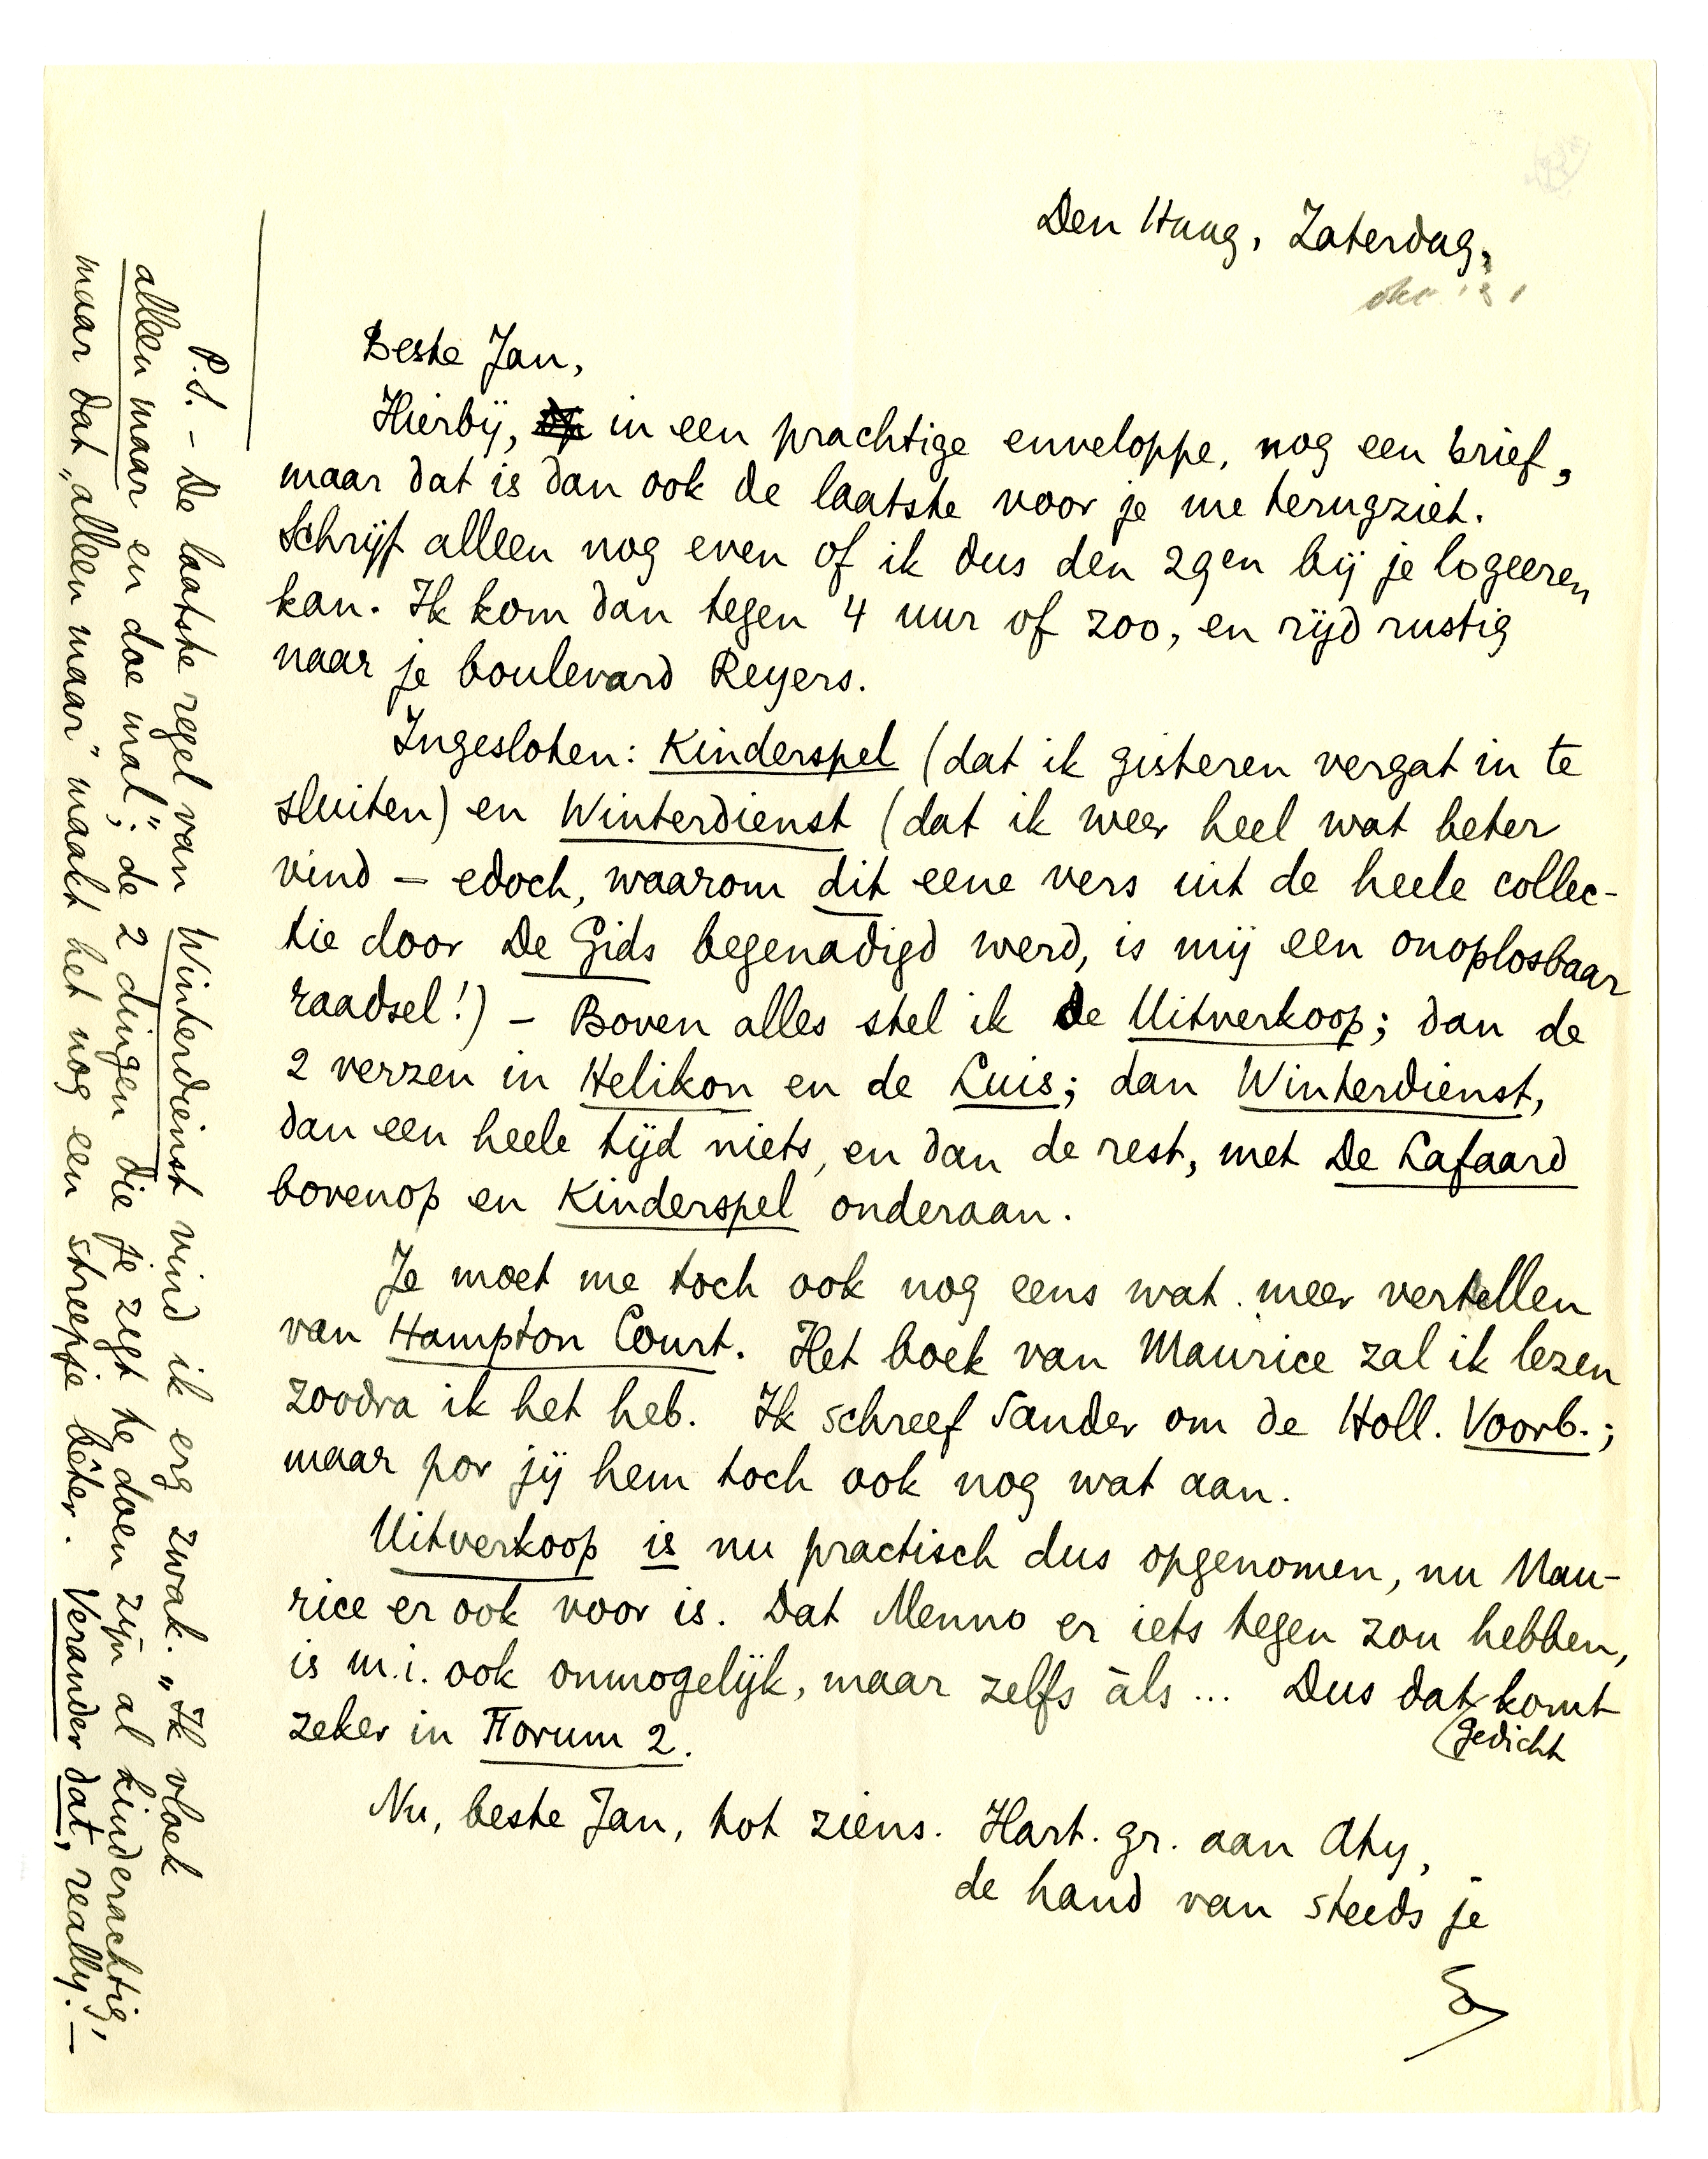 Den Haag, Zaterdag,
okt. '31
Beste Jan,
Hierbij, in een prachtige enveloppe, nog een brief,
maar dat is dan ook de laatste voor je me terugziet.
Schrijf alleen nog even of ik dus den 29en bij je logeeren
kan. Ik kom dan tegen 4 uur of zoo, en rijd rustig
naar je boulevard Reyers.
Ingesloten: Kinderspel (dat ik gisteren vergat in te
sluiten) en Winterdienst (dat ik weer heel wat beter
vind – edoch, waarom dit eene vers uit de heele collec-
tie door De Gids begenadigd werd, is mij een onoplosbaar
raadsel!) – Boven alles stel ik de Uitverkoop; dan de
2 verzen in Helikon en de Luis; dan Winterdienst,
dan een heele tijd niets, en dan de rest, met De Lafaard
bovenop en Kinderspel onderaan.
Je moet me toch ook nog eens wat meer vertellen
van Hampton Court. Het boek van Maurice zal ik lezen
zoodra ik het heb. Ik schreef Sander om de Holl. Voorb.;
maar por jij hem toch ook nog wat aan.
Uitverkoop is nu practisch dus opgenomen, nu Mau-
rice er ook voor is. Dat Menno er iets tegen zou hebben,
is m.i. ook onmogelijk, maar zelfs àls ... Dus dat gedicht komt
zeker in Forum 2.
Nu, beste Jan, tot ziens. Hart. gr. aan Aty,
de hand van steeds je
P.S. – De laatste regel van Winterdienst vind ik erg zwak. „Ik vloek
alleen maar en doe mal"; de 2 dingen die je zegt te doen zijn al kinderachtig,
maar dat „alleen maar" maakt het nog een streepje bêter. Verander dat, really! –